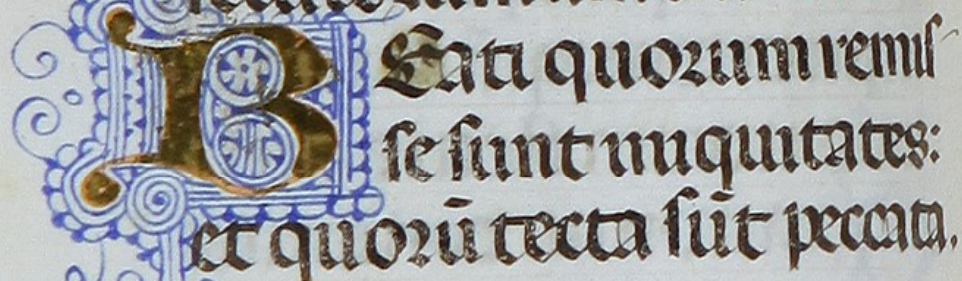 BEati quorum remis
se sunt iniquitates:
et quorū tecta sūt peccata.